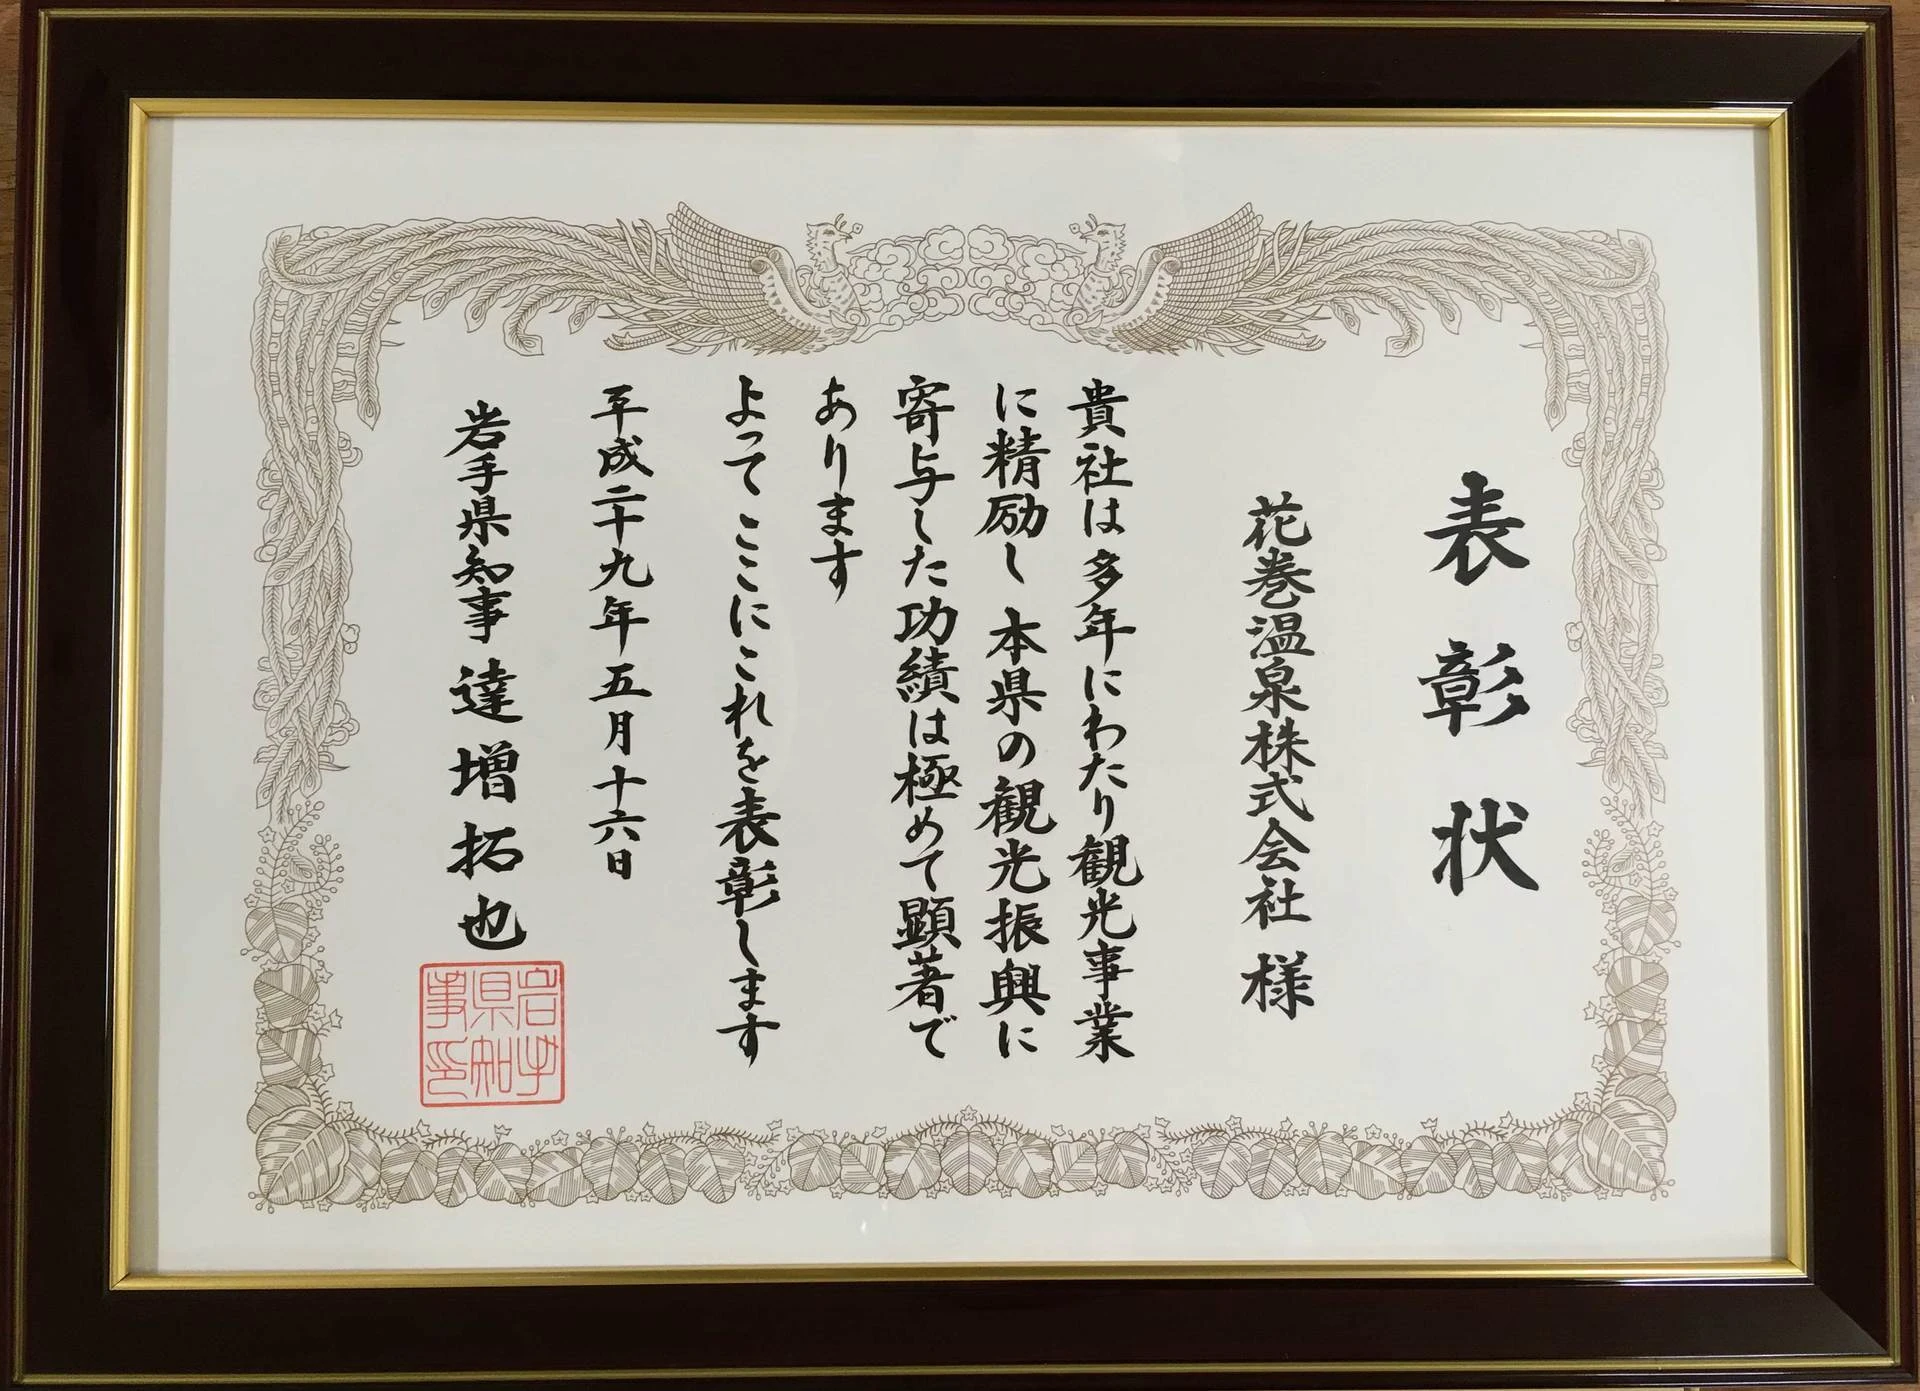 表彰状
花巻温泉株式会社 様
貴社は多年にわたり観光事業
に精励し 本県の観光振興に
寄与した功績は極めて顕著で
あります
よって ここにこれを表彰します
平成二十九年五月十六日
岩手県知事 達増拓也
岩手県知事印